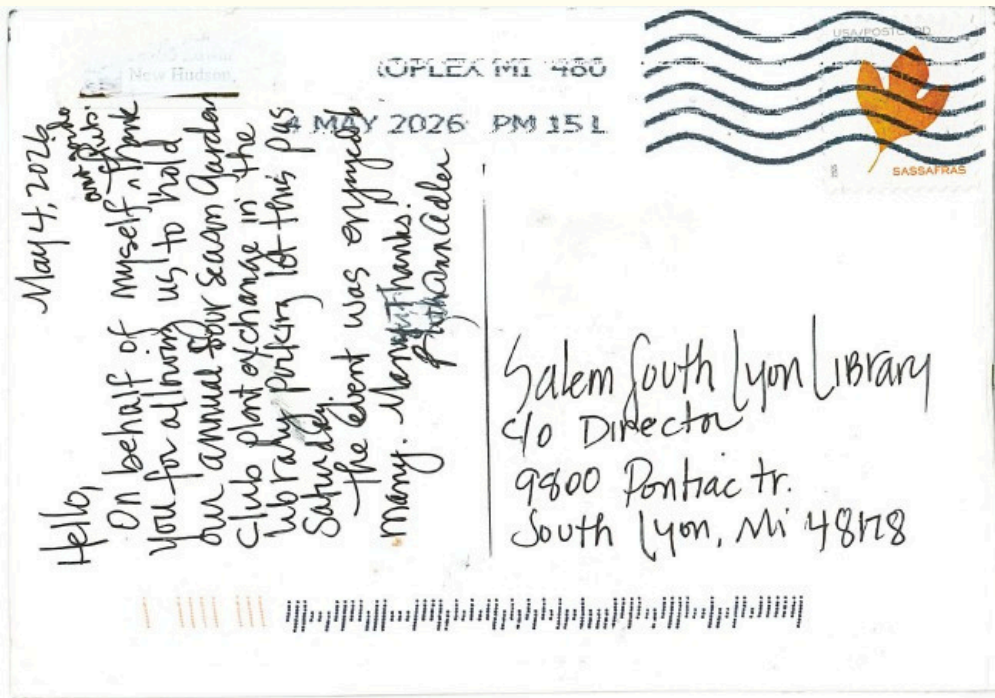 New Hudson,
OPLEX MI 480
4 MAY 2026 PM 15 L
USA/POSTCARD
SASSAFRAS
May 4, 2026
Hello,
On behalf of myself ^ Thank
you for allowing us to hold
our annual four season Garden
Club Plant exchange in the
Library Parking lot this pas
Saturday.
The event was enjoyed by
many. Many Thanks.
Ruthann Adler
Salem South Lyon Library
c/o Director
9800 Pontiac tr.
South Lyon, Mi 48178